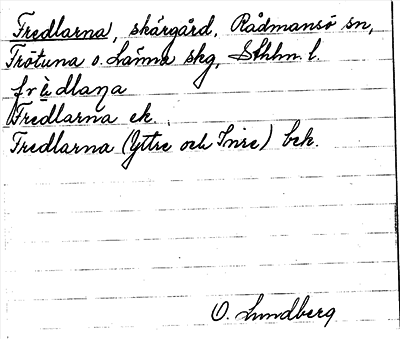 Fredlarna, skärgård, Rådmansö sn,
Frötuna o. Länna skg, Sthlm l.
frèdlaɳa
Fredlarna ek.
Fredlarna (Yttre och Inre) bek.
O. Lundberg